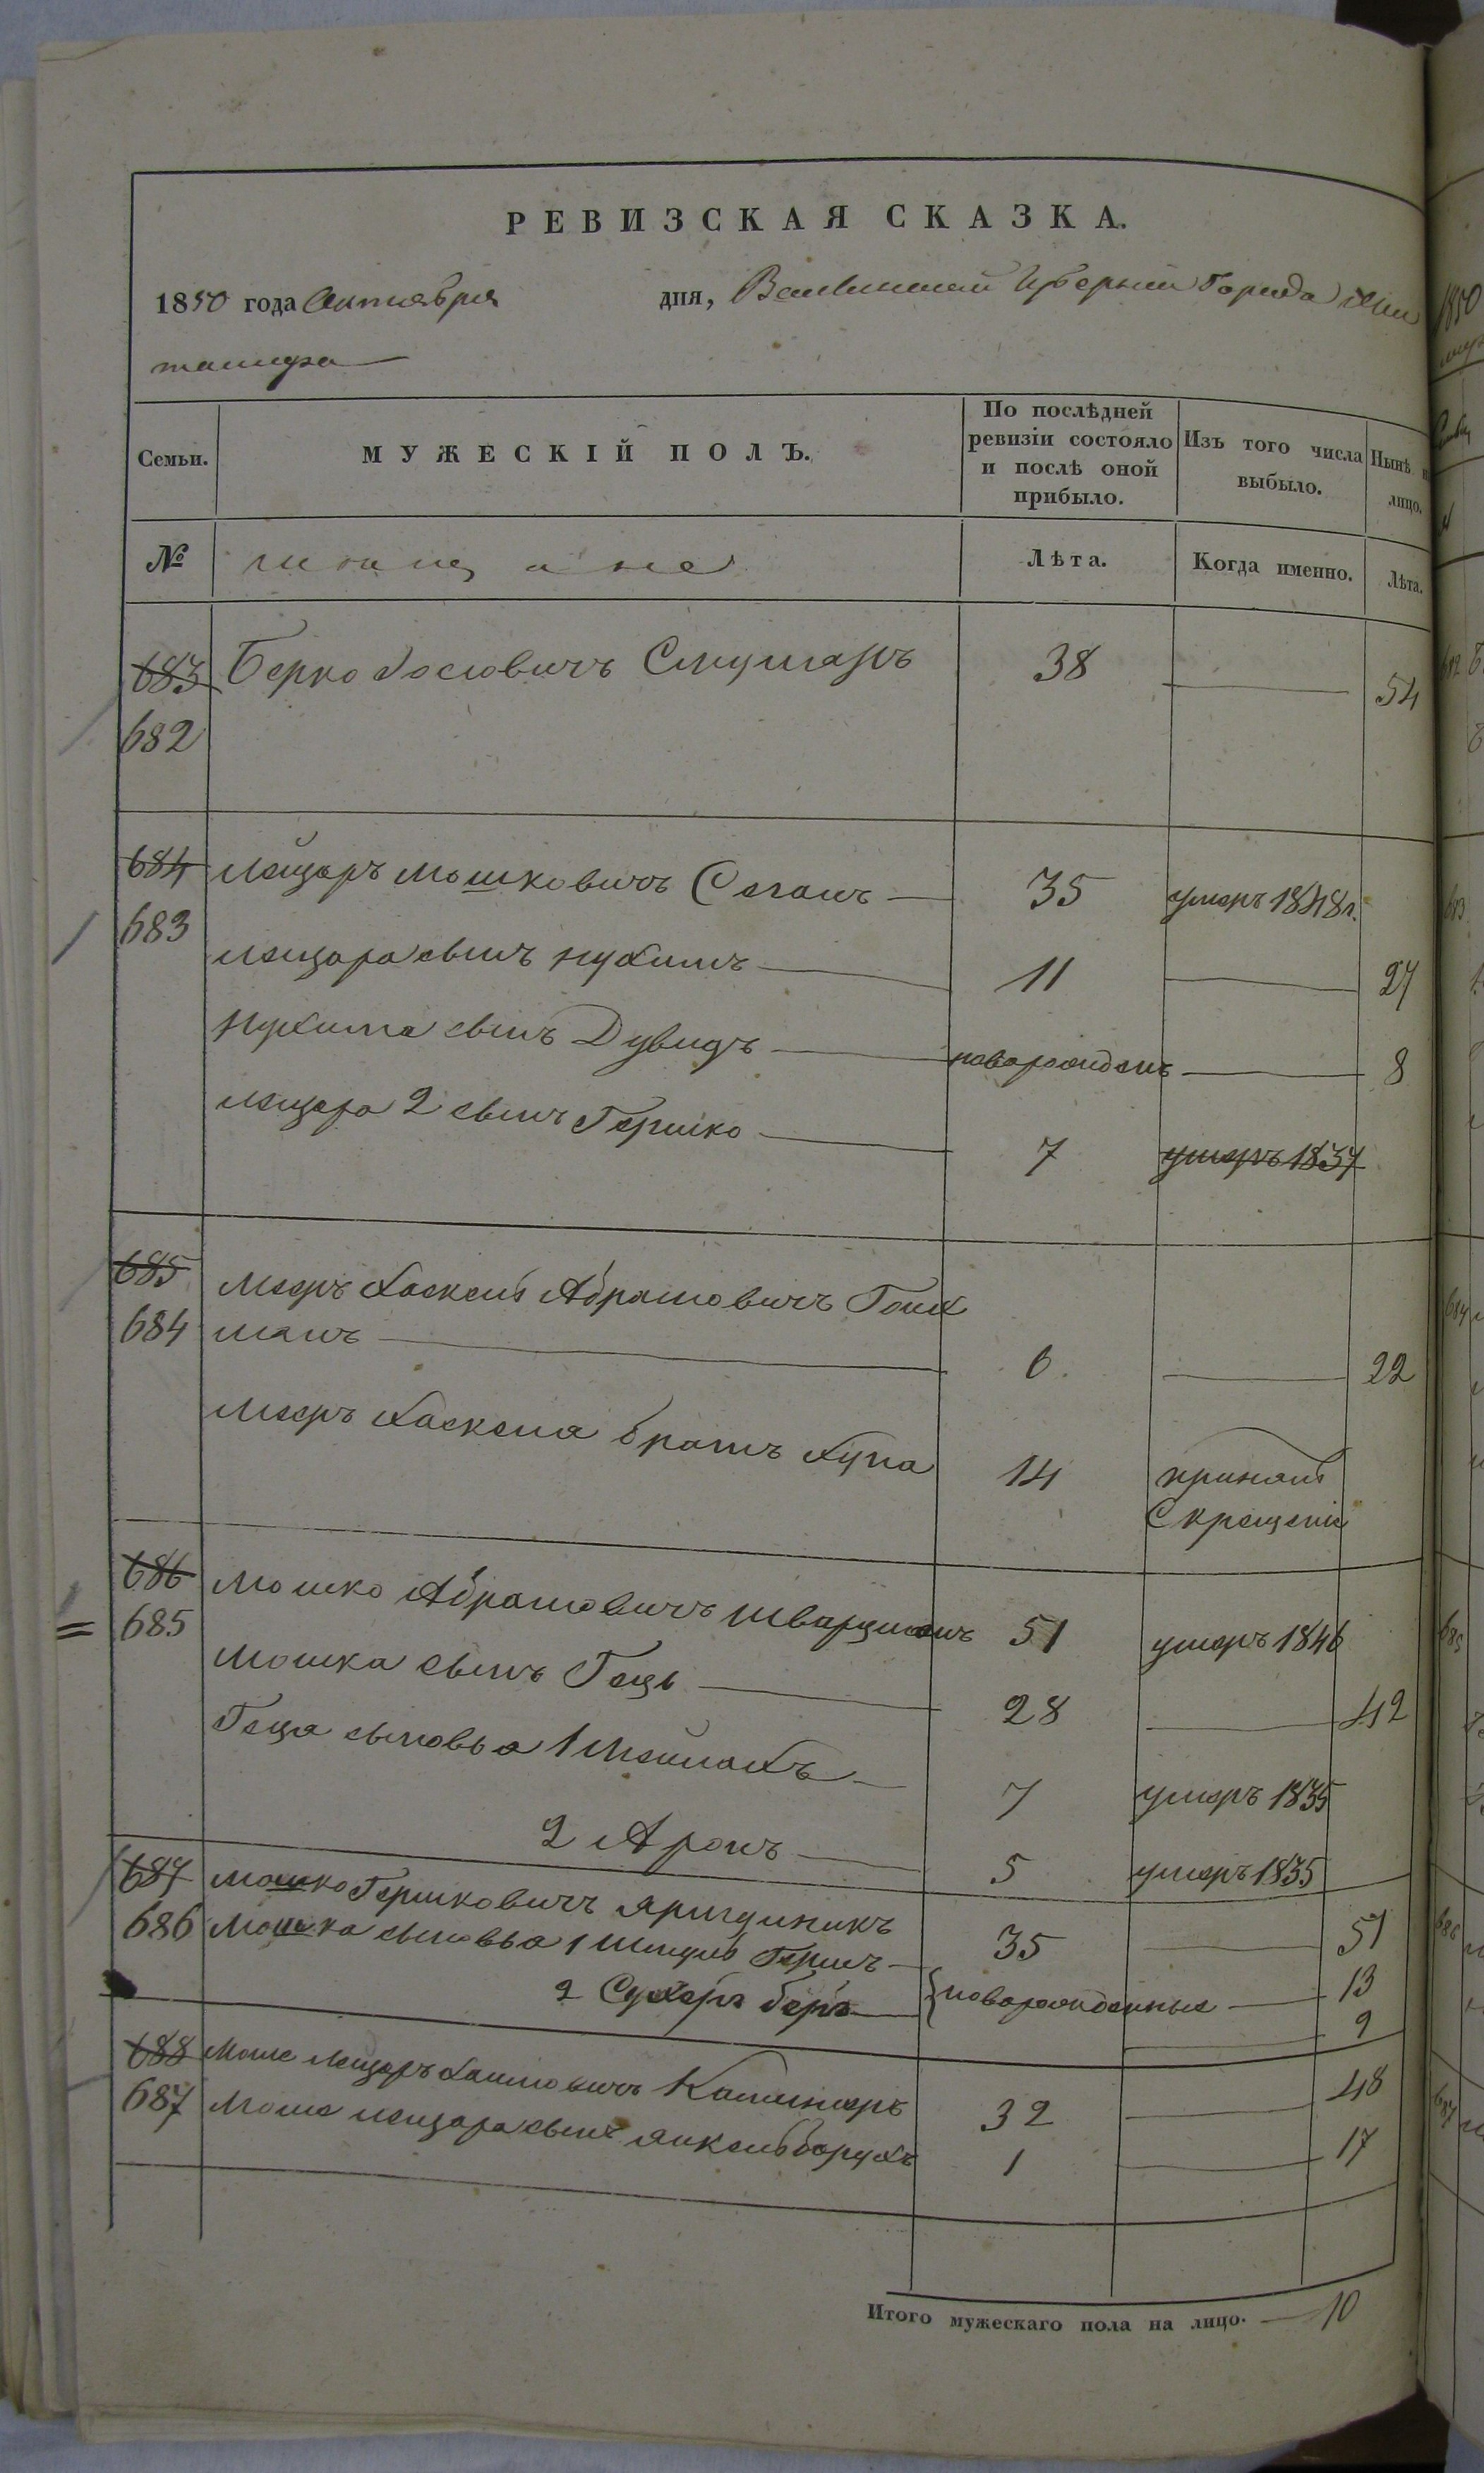 РЕВИЗСКАЯ СКАЗКА.
1850 года Октября дня, Губернии Города
МУЖЕСКІЙ ПОЛЪ.
Семьи.
По послѣдней ревизіи состояло и послѣ оной прибыло.
Изъ того числа выбыло.
Нынѣ на лицо.
№ мещане Лѣта. Когда именно. Лѣта.
683 Берко Іосіовичъ 38 54
682
684 Лейзаръ Мошковичъ Сеганъ 35 умеръ 1848г.
683
Лейзара сынъ Нухимъ 11 27
Нухима сынъ Дувидъ новорожденъ 8
Лейзара 2 сынъ Гершко 7 умеръ 1837
685 Мееръ Хаскель Абрамовичъ Гоих
684 манъ 6. 22
Мееръ Хаскеля братъ 14 принялъ
С. крещеніе
686 Мошко Абрамовичъ Шварцманъ 51 умеръ 1846
685
Мошка сынъ Гецъ 28 42
Геца сыновья 1 Мейлахъ 7 умеръ 1835
2 Аронъ 5 умеръ 1835
687 Мошко Гершковичъ 35 51
686 Мошка сыновья 1 Шмуль Гершъ новорожденные 13
2 Сухеръ Беръ 9
688 Моше Лейзаръ Хаимовичъ 32 48
687 Моше Лейзара сынъ Янкель Борухъ 1 17
Итого мужескаго пола на лицо. 10